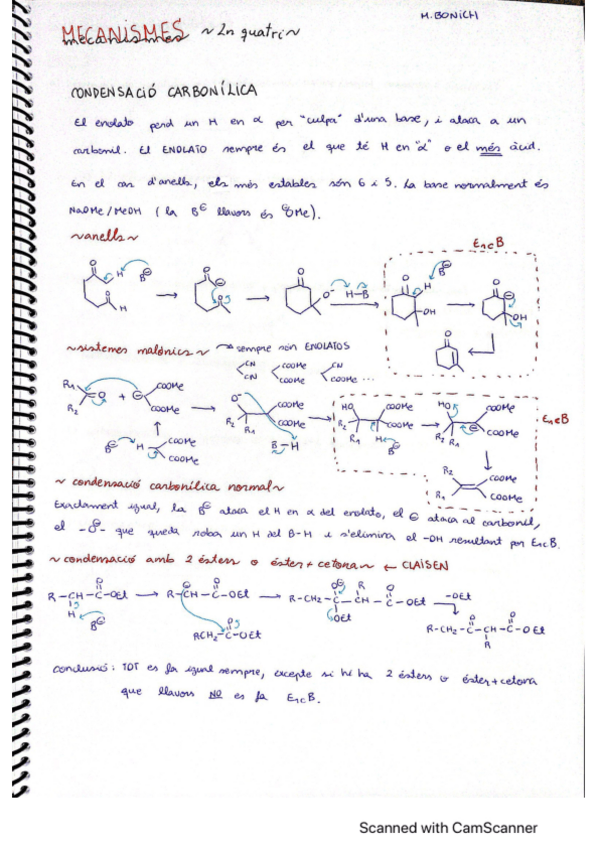 M. BONICH
MECANISMES ~ 2n quatri ~
CONDENSACIÓ CARBONÍLICA
El enolato perd un H en α per "culpa" d'una base, i ataca a un
carbonil. El ENOLATO sempre és el que té H en "α" o el més àcid.
En el cas d'anells, els més estables són 6 i 5. La base normalment és
NaOMe/MeOH (la B⊖ llavors és ⊖OMe).
~anells~
E1cB
O H B⊖ O H
O ⊖ O
O O⊖ H-B
O H B⊖ OH
O ⊖ OH
O
~sistemes malònics~ → sempre són ENOLATOS
CN COOMe CN
CN COOMe COOMe ...
R1 R2 O + ⊖ COOMe COOMe
B⊖ H COOMe COOMe
O⊖ R2 R1 COOMe COOMe B-H
HO R2 R1 COOMe COOMe H B⊖
HO R2 R1 ⊖ COOMe COOMe
E1cB
R2 R1 COOMe COOMe
~condensació carbonílica normal~
Exactament igual, la B⊖ ataca el H en α del enolato, el ⊖ ataca al carbonil,
el -O⊖- que queda roba un H del B-H i s'elimina el -OH resultant per E1cB.
~condensació amb 2 èsters o éster + cetona~ ← CLAISEN
R-CH-C-OEt → R-CH-C-OEt → R-CH2-C-CH-C-OEt -OEt
H B⊖ RCH2-C-OEt OEt
R-CH2-C-CH-C-OEt
R
Conclusió: TOT es fa igual sempre, excepte si hi ha 2 èsters o éster+cetona
que llavors NO es fa E1cB.
Scanned with CamScanner